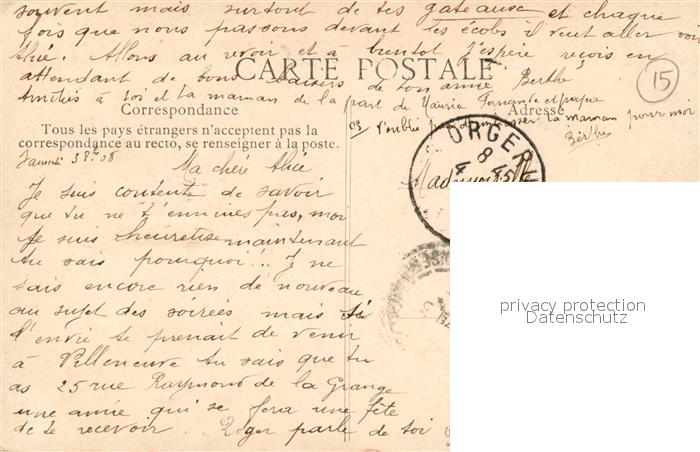 souvent mais surtout de tes gateaux et chaque
fois que nous passons devant les écoles il veut aller voir
Alice. Allons au revoir et à bientot j'espère reçois en
attendant de bons baisers de ton amie Berthe
CARTE POSTALE
Amitiés à toi et ta maman de la part de Maurice Fernande et
15
Correspondance
Adresse
PS n'oublie pas d'embrasser ta maman pour moi
Berthe
Tous les pays étrangers n'acceptent pas la
correspondance au recto, se renseigner à la poste.
Samedi 08
Ma chère Alice
Je suis contente de savoir
que tu ne t'ennuies pas, moi
je suis heureuse maintenant
tu sais pourquoi!.. Je ne
sais encore rien de nouveau
au sujet des soirées mais si
l'envie te prenait de venir
à Villeneuve tu sais que tu
as 25 rue Raymond de la Grange
une amie qui se fera une fête
de te recevoir. Roger parle de toi
ORGERU
8 45
4
Mademoiselle
privacy protection
Datenschutz